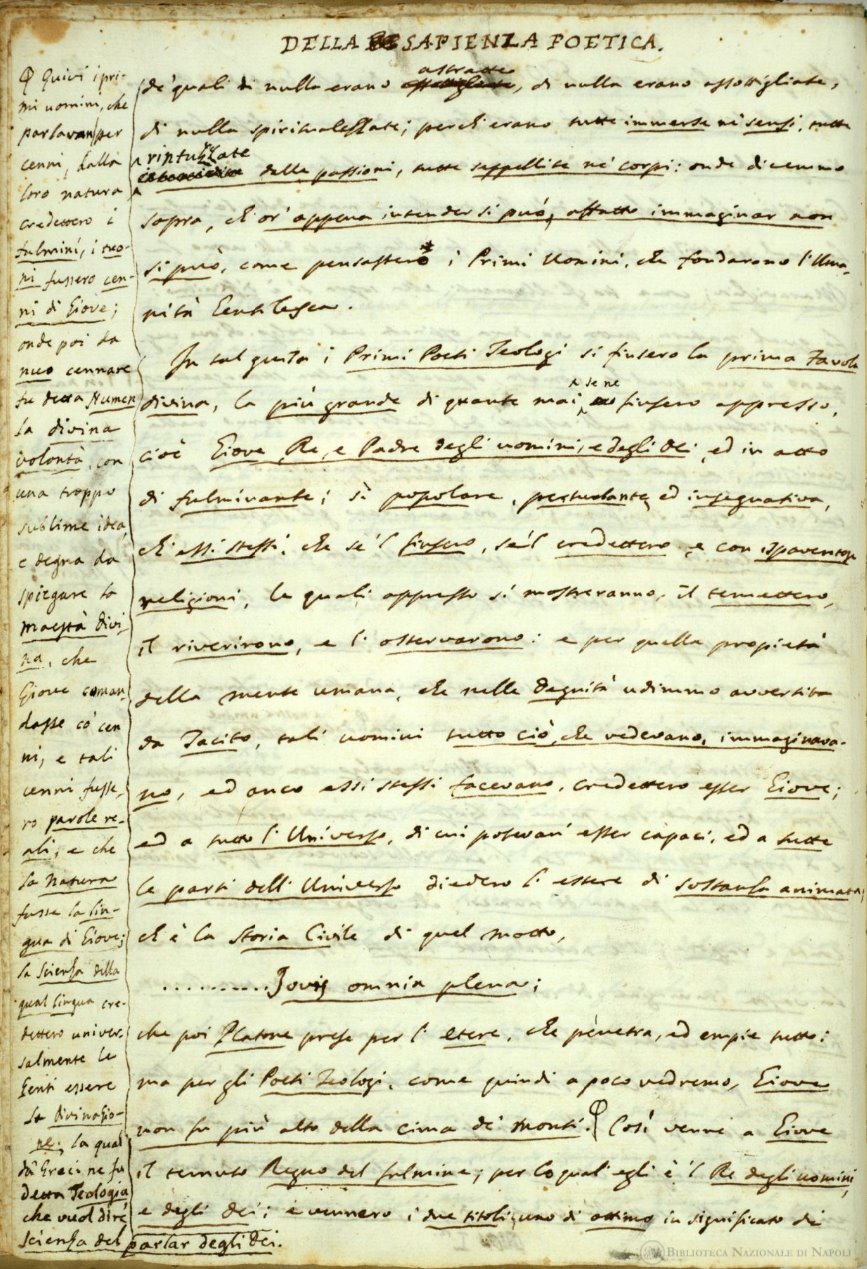 DELLA SAPIENZA POETICA.
de' quali di nulla erano astratte, di nulla erano assottigliate,
di nulla spiritualezzate; perch'erano tutte immerse ne' sensi, tutte
rintuzzate dalle passioni, tutte seppellite ne' corpi: onde dicemmo
sopra, ch'or' appena intender si può, affatto immaginar non
si può, come pensassero i Primi Uomini, che fondarono l'Uma-
nità Gentilesca.
In tal guisa i Primi Poeti Teologi si finsero la prima Favola
divina, la più grande di quante mai se ne finsero appresso,
cioè Giove, Re, e Padre degli uomini, e degli dei, ed in atto
di fulminante; sì popolare, perturbante, ed insegnativa,
ch'essi stessi, che se 'l finsero, se 'l credettero, e con ispaventose
religioni, le quali appresso si mostreranno, il temettero,
il riverirono, e l'osservarono: e per quella propietà
della mente umana, che nelle degnità udimmo avvertita
da Tacito, tali uomini tutto ciò, che vedevano, immaginava-
no, ed anco essi stessi facevano, credettero esser Giove;
ed a tutto l'Universo, di cui potevan' esser capaci, ed a tutte
le parti dell'Universo diedero l'essere di sostanza animata;
ch'è la Storia Civile di quel motto,
.......... Jovis omnia plena;
che poi Platone prese per l'etere, che penetra, ed empie tutto:
ma per gli Poeti Teologi, come quindi a poco vedremo, Giove
non fu più alto della cima de' monti. Così venne a Giove
il temuto Regno del fulmine; per lo qual' egli è 'l Re degli uomini,
e degli dei; e vennero i due titoli, uno di ottimo in significato di
Quivi i pri-
mi uomini, che
parlavan per
cenni, dalla
loro natura
credettero i
fulmini, i tuo-
ni fussero cen-
ni di Giove;
onde poi da
nuo cennare
fu detta Numen
la divina
volontà, con
una troppo
sublime idea,
e degna da
spiegare la
maestà divi-
na, che
Giove coman-
dasse co' cen-
ni, e tali
cenni fusse-
ro parole re-
ali, e che
la Natura
fusse la lin-
gua di Giove;
la scienza della
qual lingua cre-
dettero univer-
salmente le
Genti essere
la divinazio-
ne; la qual
da' Greci ne fu
detta Teologia
che vuol dire
scienza del parlar degli dei.
BIBLIOTECA NAZIONALE DI NAPOLI